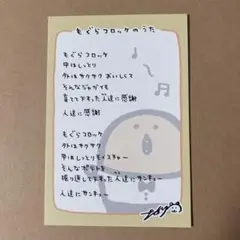 もぐらコロッケのうた
もぐらコロッケ
中はしっとり
外はサクサク おいしくて
そんなジャガイモ
育てて下さった人達に感謝
人達に感謝
もぐらコロッケ
外はサクサク
中はしっとりモイスチャー
そんなポテトを
掘り返して下さった人達にサンキュー
人達にサンキュー